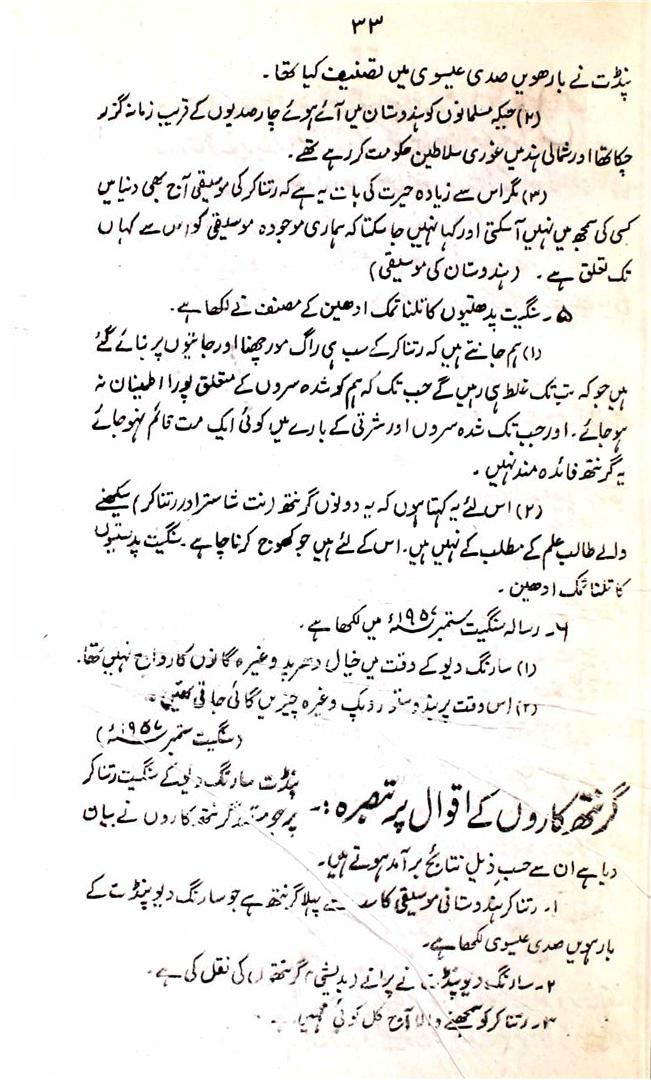 ۳۳
پنڈت نے بارھویں صدی عیسوی میں تصنیف کیا تھا۔
(۲) جبکہ مسلمانوں کو ہندوستان میں آئے ہوئے چار صدیوں کے قریب زمانہ گزر
چکا تھا اور شمالی ہند میں غوری سلاطین حکومت کر رہے تھے۔
(۳) مگر اس سے زیادہ حیرت کی بات یہ ہے کہ رتناکر کی موسیقی آج بھی دنیا میں
کسی کی سمجھ میں نہیں آ سکتی اور کہا نہیں جا سکتا کہ ہماری موجودہ موسیقی کو اس سے کہاں
تک تعلق ہے۔ (ہندوستان کی موسیقی)
۵۔ سنگیت پدھتیوں کا تلنا تمک ادھین کے مصنف نے لکھا ہے۔
(۱) ہم جانتے ہیں کہ رتناکر کے سب ہی راگ مورچھنا اور جاتیوں پر بنائے گئے
ہیں جو کہ تب تک غلط ہی رہیں گے جب تک کہ ہم کو شدھ سروں کے متعلق پورا اطمینان نہ
ہو جائے۔ اور جب تک شدھ سروں اور شرتی کے بارے میں کوئی ایک مت قائم نہو جائے
یہ گرنتھ فائدہ مند نہیں۔
(۲) اس لئے یہ کہتا ہوں کہ یہ دونوں گرنتھ (نٹ شاستر اور رتناکر) سیکھنے
والے طالب علم کے مطلب کے نہیں ہیں۔ اس کے لئے ہیں جو کھوج کرنا چاہے۔ سنگیت پدھتیوں
کا تلنا تمک ادھین۔
۶۔ رسالہ سنگیت ستمبر ۱۹۵۷ء میں لکھا ہے۔
(۱) سارنگ دیو کے وقت میں خیال دھرپد وغیرہ گانوں کا رواج نہیں تھا۔
(۲) اس وقت پربندھ وستو روپک وغیرہ چیزیں گائی جاتی تھیں۔
(سنگیت ستمبر ۱۹۵۷ء)
گرنتھ کاروں کے اقوال پر تبصرہ:۔ پنڈت سارنگ دیو کے سنگیت رتناکر
پر جو مستند گرنتھ کاروں نے بیان
دیا ہے ان سے حسب ذیل نتائج برآمد ہوتے ہیں۔
۱۔ رتناکر ہندوستانی موسیقی کا سب سے پہلا گرنتھ ہے جو سارنگ دیو پنڈت کے
بارہویں صدی عیسوی لکھا ہے۔
۲۔ سارنگ دیو پنڈت نے پرانے گرنتھوں کی نقل کی ہے۔
۳۔ رتناکر کو سمجھنے والا آج کل کوئی نہیں ہے۔